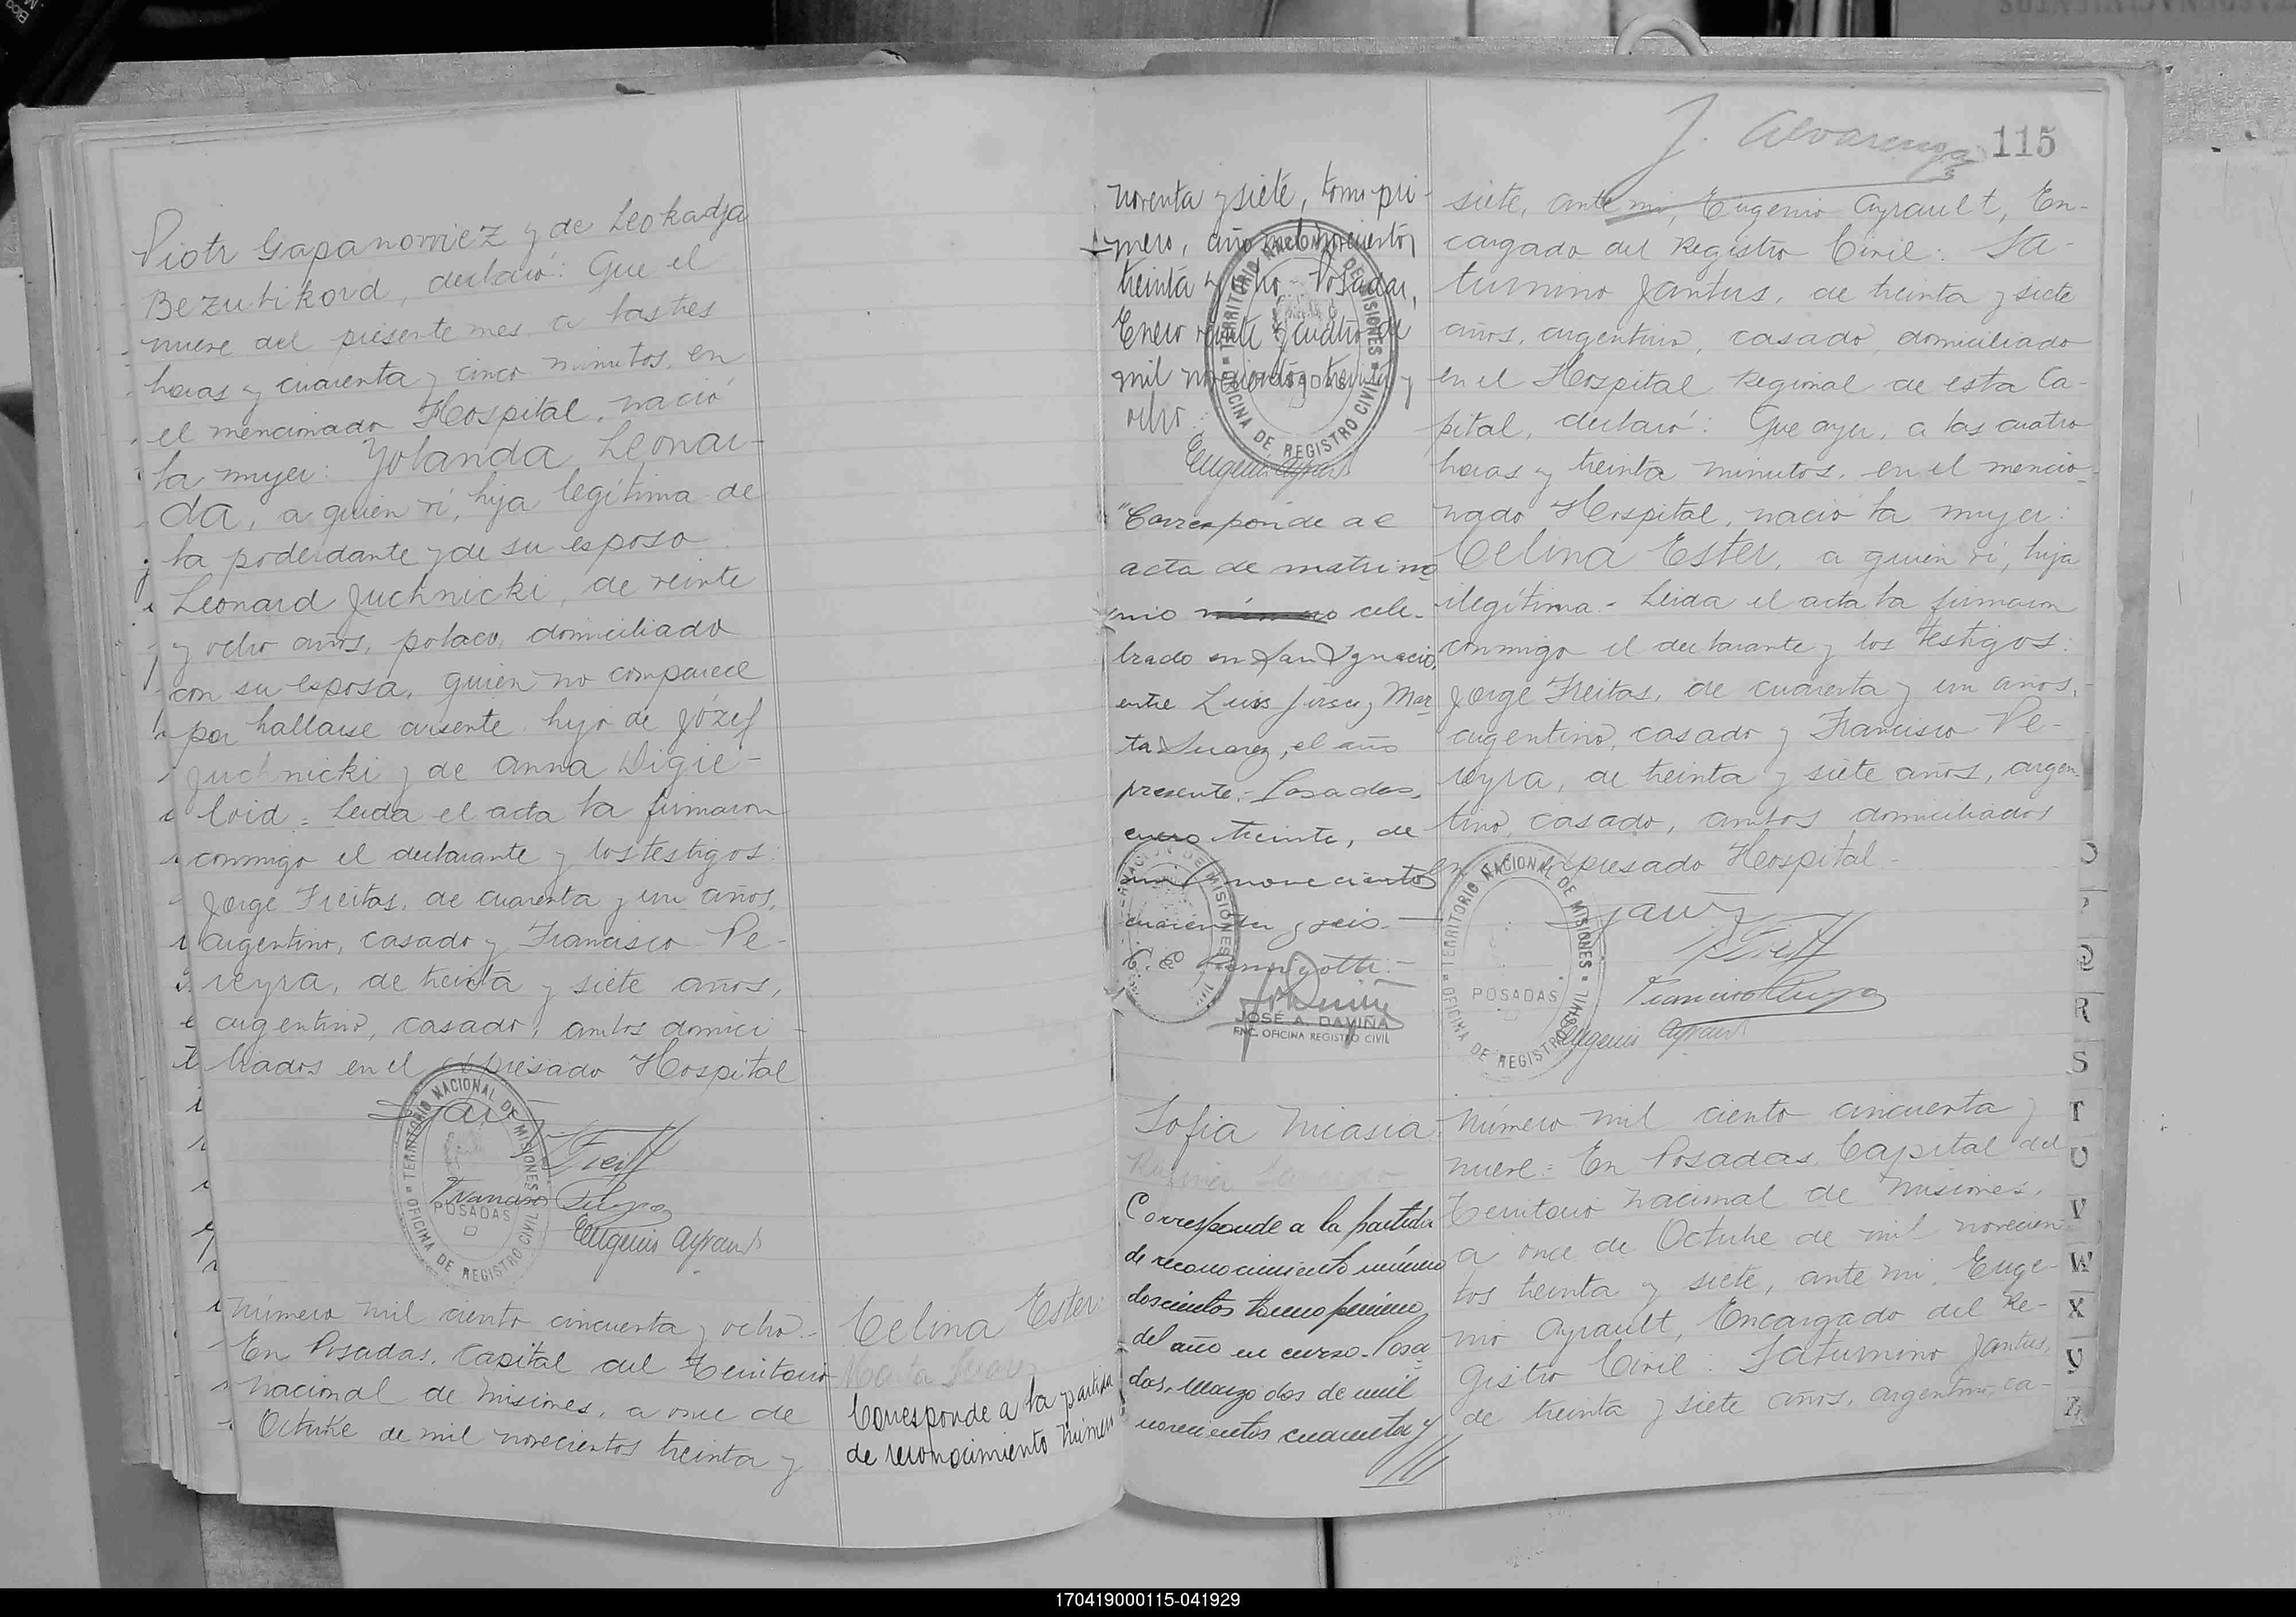 Piotr Gapanowiez y de Leokadja
Bezubikord, declaró: Que el
nueve del presente mes, a las tres
horas y cuarenta y cinco minutos, en
el mencionado Hospital, nació
la mujer: Yolanda Leonar-
da, a quien vi, hija legítima de
la poderdante y de su esposo
Leonard Juchnicki, de veinte
y ocho años, polaco, domiciliado
con su esposa, quien no comparece
por hallarse ausente, hijo de Józef
Juchnicki y de Anna Wigie-
loid = Leida el acta la firmaron
conmigo el declarante y los testigos:
Jorge Freitas, de cuarenta y un años,
argentino, casado y Francisco Pe-
reyra, de treinta y siete años,
argentino, casado, ambos domici-
liados en el expresado Hospital
TERRITORIO NACIONAL DE MISIONES
POSADAS
OFICINA DE REGISTRO CIVIL
Francisco Pereyra
Eugenio Ayrault
Número mil ciento cincuenta y ocho.-
En Posadas, Capital del Territorio
Nacional de Misiones, a once de
Octubre de mil novecientos treinta y
Celina Ester:
Marta Suarez
Corresponde a la partida
de reconocimiento número
noventa y siete, tomo pri-
mero, año mil novecientos
treinta y ocho. Posadas,
Enero veinte y cuatro de
mil novecientos treinta y
ocho.
TERRITORIO NACIONAL DE MISIONES
POSADAS
OFICINA DE REGISTRO CIVIL
Eugenio Ayrault
"Corresponde al
acta de matrimo
nio número cele-
brado en San Ignacio,
entre Luis y Mar
ta Suarez, el año
presente.- Posadas,
enero treinta, de
mil novecientos
cuarenta y seis.-
DE MISIONES
CIVIL
JOSÉ A. DAVIÑA
ENC. OFICINA REGISTRO CIVIL
Sofia Nicasia:
Corresponde a la partida
de reconocimiento número
doscientos tomo primero,
del año en curso. Posa
das, Marzo dos de mil
novecientos cuarenta y
J. Alvarenga
115
siete, ante mi, Eugenio Ayrault, En-
cargado del Registro Civil: Sa-
turnino Jantus, de treinta y siete
años, argentino, casado, domiciliado
en el Hospital Regional de esta Ca-
pital, declaró: Que ayer, a las cuatro
horas y treinta minutos, en el mencio-
nado Hospital, nació la mujer:
Celina Ester, a quien vi, hija
ilegítima.- Leida el acta la firmaron
conmigo el declarante y los testigos:
Jorge Freitas, de cuarenta y un años,
argentino, casado y Francisco Pe-
reyra, de treinta y siete años, argen-
tino, casado, ambos domiciliados
en el expresado Hospital.-
TERRITORIO NACIONAL DE MISIONES
POSADAS
OFICINA DE REGISTRO CIVIL
Francisco Pereyra
Eugenio Ayrault
Número mil ciento cincuenta y
nueve.= En Posadas, Capital del
Territorio Nacional de Misiones,
a once de Octubre de mil novecien
tos treinta y siete, ante mi, Euge-
nio Ayrault, Encargado del Re-
gistro Civil: Saturnino Jantus,
de treinta y siete años, argentino, ca-
Q
R
S
T
U
V
W
X
Y
Z
170419000115-041929